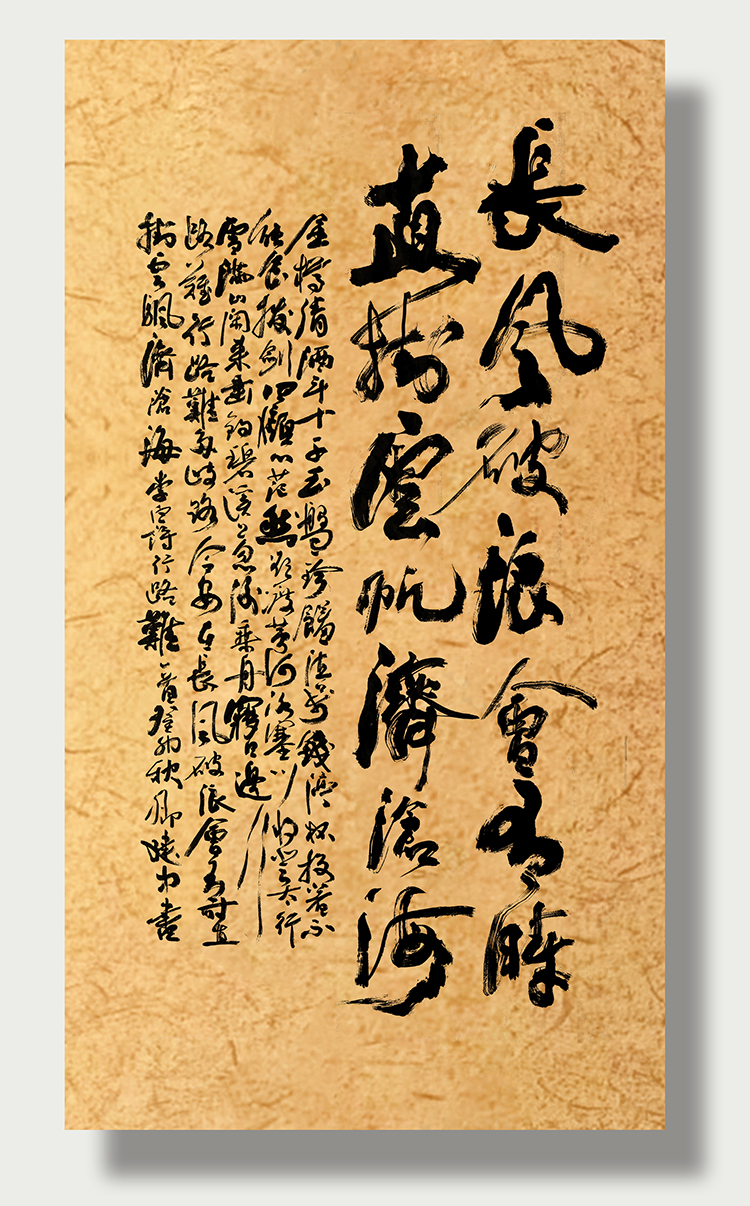 長風破浪會有時
直掛雲帆濟滄海
金樽清酒斗十千玉盤珍饈值萬錢停杯投箸不
能食拔劍四顧心茫然欲渡黃河冰塞川將登太行
雪滿山閑來垂釣碧溪上忽復乘舟夢日邊行
路難行路難多歧路今安在長風破浪會有時直
掛雲帆濟滄海李白詩行路難一首癸卯秋書